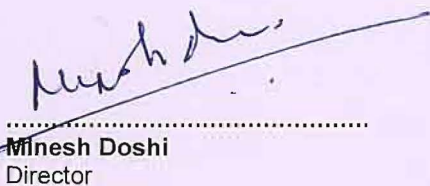 ....................................................
Minesh Doshi
Director